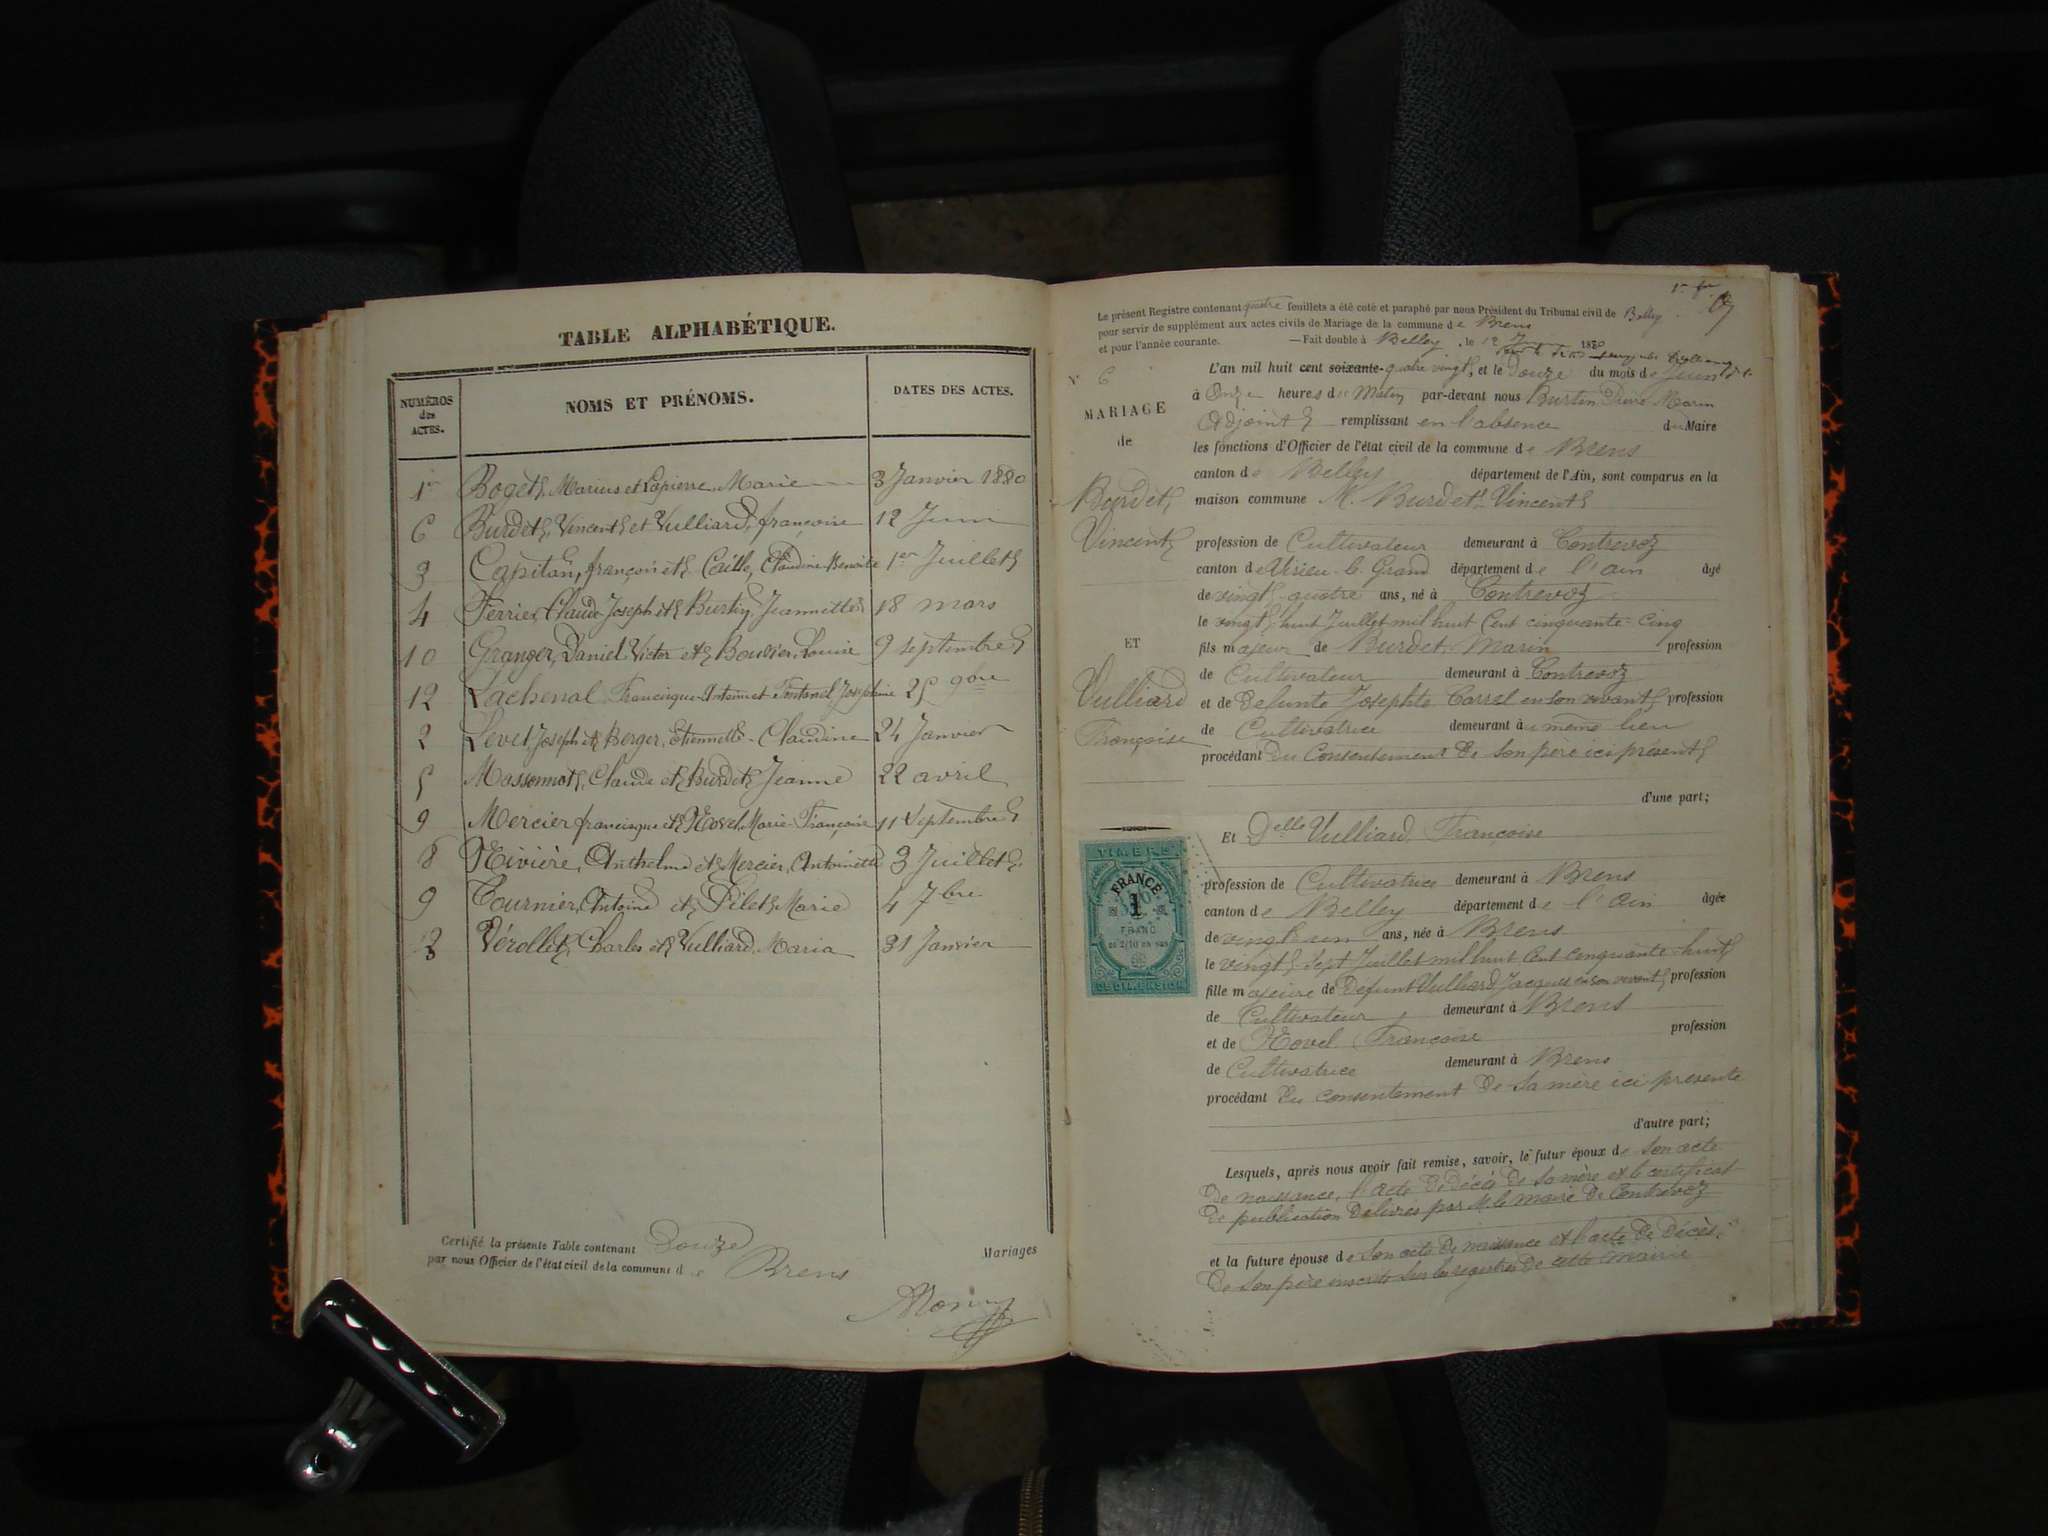 TABLE ALPHABÉTIQUE.
NUMÉROS des ACTES. NOMS ET PRÉNOMS. DATES DES ACTES.
1er Boget, Marius et Lapierre, Marie 3 Janvier 1880
6 Burdet, Vincent et Vulliard, françoise 12 Juin
Capitan, françois et Caille, Claudine Benoite 1er Juillet
4 Ferrier, Claude Joseph et Burtin, Jeannette 18 mars
10 Granger, Daniel Victor et Bouvier, Louise 9 septembre
12 Lachenal Francisque Antoine et Fontanel Josephine 25 9bre
2 Levet Joseph et Berger, Etiennette - Claudine 24 Janvier
5 Massonnot, Claude et Burdet, Jeanne 22 avril
9 Mercier francisque et Hovel, Marie Françoise 11 Septembre
8 Rivière, Anthelme et Mercier, Antoinette 3 Juillet
9 Tournier, Antoine et Pilet, Marie 4 7bre
3 Vérollet, Charles et Vulliard, Maria 31 Janvier
Certifié la présente Table contenant Douze Mariages
par nous Officier de l'état civil de la commune de Brens
Le présent Registre contenant quatre feuillets a été coté et paraphé par nous Président du Tribunal civil de Belley
pour servir de supplément aux actes civils de Mariage de la commune de Brens
et pour l'année courante. — Fait double à Belley, le 12 Juin 1880
N° 6
MARIAGE
de
Burdet,
Vincent
ET
Vulliard
Françoise
L'an mil huit cent soixante- quatre vingt, et le Douze du mois de Juin
à Onze heures du Matin par-devant nous Burtin Pierre Marin
Adjoint remplissant en l'absence du Maire
les fonctions d'Officier de l'état civil de la commune de Brens
canton de Belley département de l'Ain, sont comparus en la
maison commune M. Burdet Vincent
profession de Cultivateur demeurant à Contrevoz
canton de Virieu-le-Grand département de l'ain âgé
de vingt-quatre ans, né à Contrevoz
le vingt-huit Juillet mil huit Cent cinquante-Cinq
fils majeur de Burdet, Marin profession
de Cultivateur demeurant à Contrevoz
et de Defunte Josephte Carrel en son vivant profession
de Cultivatrice demeurant au même lieu
procédant Du Consentement De Son père ici présent
d'une part;
Et Delle Vulliard, Françoise
profession de Cultivatrice demeurant à Brens
canton de Belley département de l'ain âgée
de vingt un ans, née à Brens
le vingt Sept Juillet mil huit Cent cinquante-huit
fille majeure de Defunt Vulliard, Jacques en son vivant profession
de Cultivateur demeurant à Brens
et de Hovel Françoise profession
de Cultivatrice demeurant à Brens
procédant Du Consentement De Sa mère ici présente
d'autre part;
Lesquels, après nous avoir fait remise, savoir, le futur époux de Son acte
De naissance, l'acte De décès De Sa mère et le certificat
De publication Délivrés par M. le Maire De Contrevoz
et la future épouse de Son acte De naissance et l'acte De Décès
De Son père inscrits Sur les registres De cette Mairie
TIMBRE
FRANCE
1
FRANC
DE DIMENSION